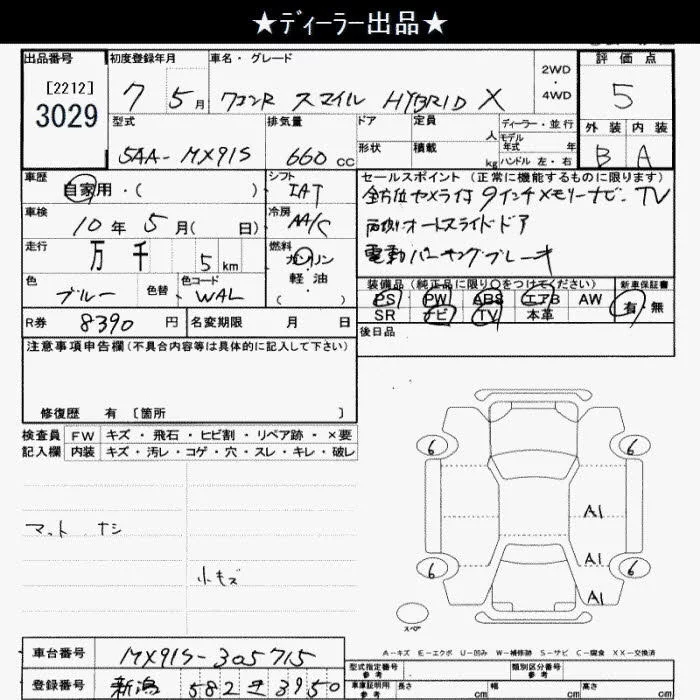 ★ﾃﾞｨｰﾗｰ出品★
出品番号
[2212]
3029
初度登録年月
7 5月
車名・グレード
ワゴンR スマイル HYBRID X
2WD
・
4WD
評価点
5
外装 内装
B A
型式
5AA-MX91S
排気量
660 cc
ドア
定員
人
形状
積載
kg
ディーラー・並行
モデル
年式 年
ハンドル 左・右
車歴
自家用・( )
シフト
IAT
車検
10年 5月( 日)
冷房
AA/C
走行
万 千 5 km
燃料
ガソリン
軽・油
( )
色
ブルー
色替
色コード
WAL
セールスポイント (正常に機能するものに限ります)
全方位カメラ付 9インチメモリーナビ・TV
両側オートスライドドア
電動パーキングブレーキ
装備品 (純正品に限り〇をつけてください)
PS PW ABS エアB AW
SR ナビ TV 本革
新車保証書
有・無
R券 8390 円
名変期限 月 日
後日品
注意事項申告欄 (不具合内容等は具体的に記入して下さい)
修復歴 有 〔箇所 〕
検査員 FW キズ・飛石・ヒビ割・リペア跡・×要
記入欄 内装 キズ・汚レ・コゲ・穴・スレ・キレ・破レ
マット ナシ
小キズ
6 6
A1
A1
6 6
スペア
A-キズ E-エクボ U-凹み W-補修跡 S-サビ C-腐食 XX-交換済
車台番号
MX91S-305715
登録番号
新潟 582 さ 3950
型式指定番号
参考
類別区分番号
参考
車庫証明用
参考
長さ cm
幅 cm
高さ cm